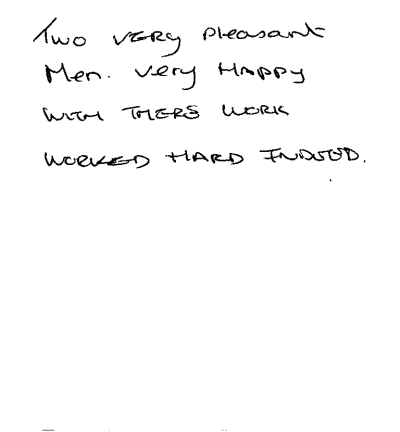 Two very pleasant
Men. very HAPPY
WITH THERS WORK
WORKED HARD INDEED.